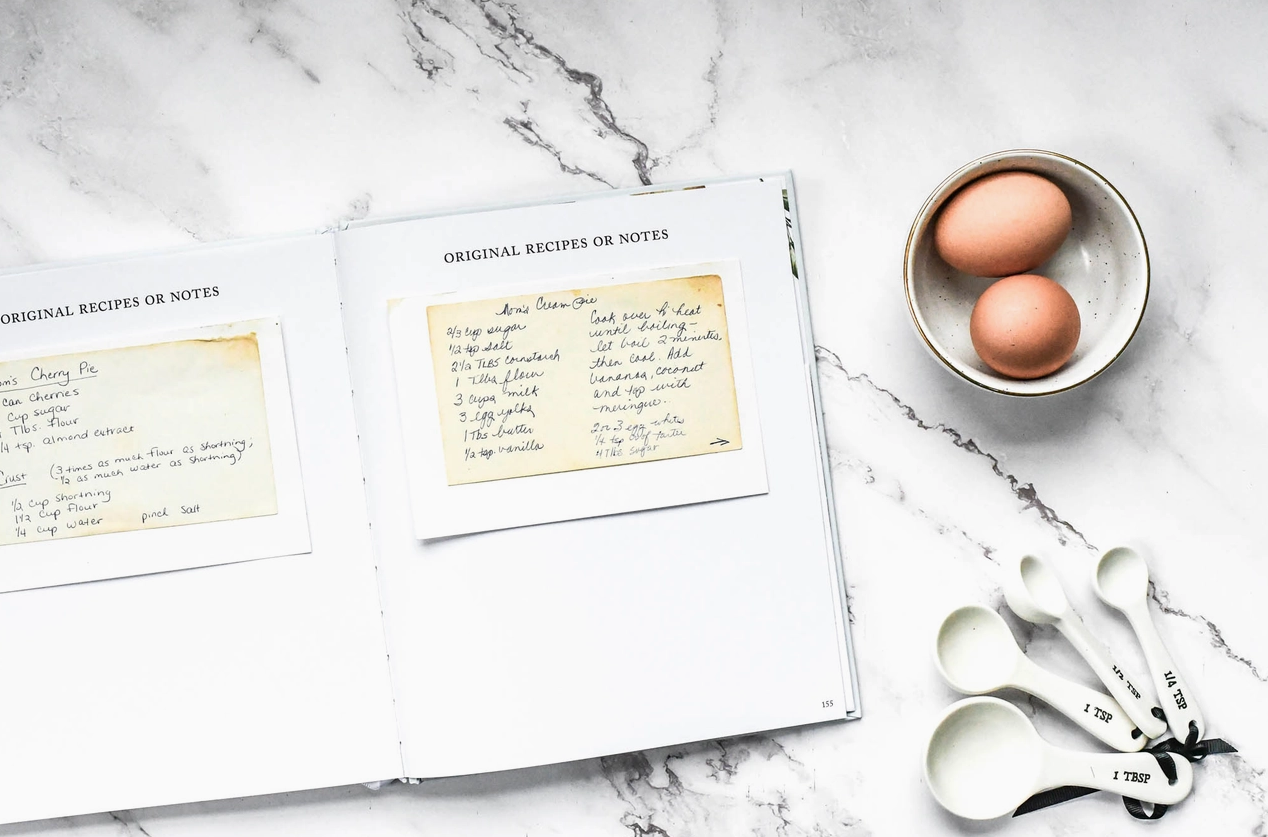 ORIGINAL RECIPES OR NOTES
om's Cherry Pie
can cherries
cup sugar
Tlbs. flour
1/4 tsp. almond extract
Crust (3 times as much flour as shortning;
1/2 as much water as shortning)
1/2 cup shortning
1 1/2 cup flour
1/4 cup water pinch salt
ORIGINAL RECIPES OR NOTES
Mom's Cream Pie
2/3 cup sugar
1/2 tsp salt
2 1/2 TLBS cornstarch
1 Tlbs flour
3 cups milk
3 egg yolks
1 Tbs butter
1/2 tsp. vanilla
Cook over heat
until boiling –
let boil 2 minutes,
then cool. Add
bananas, coconut
and top with
meringue.
2 or 3 egg whites
1/4 tsp tarter
4 sugar
155
1/4 TSP
1/2 TSP
1 TSP
1 TBSP